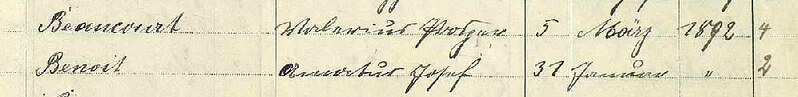 Beancourt Valerius Prosper 5 März 1892 4
Benoit Amatus Josef 31 Januar " 2